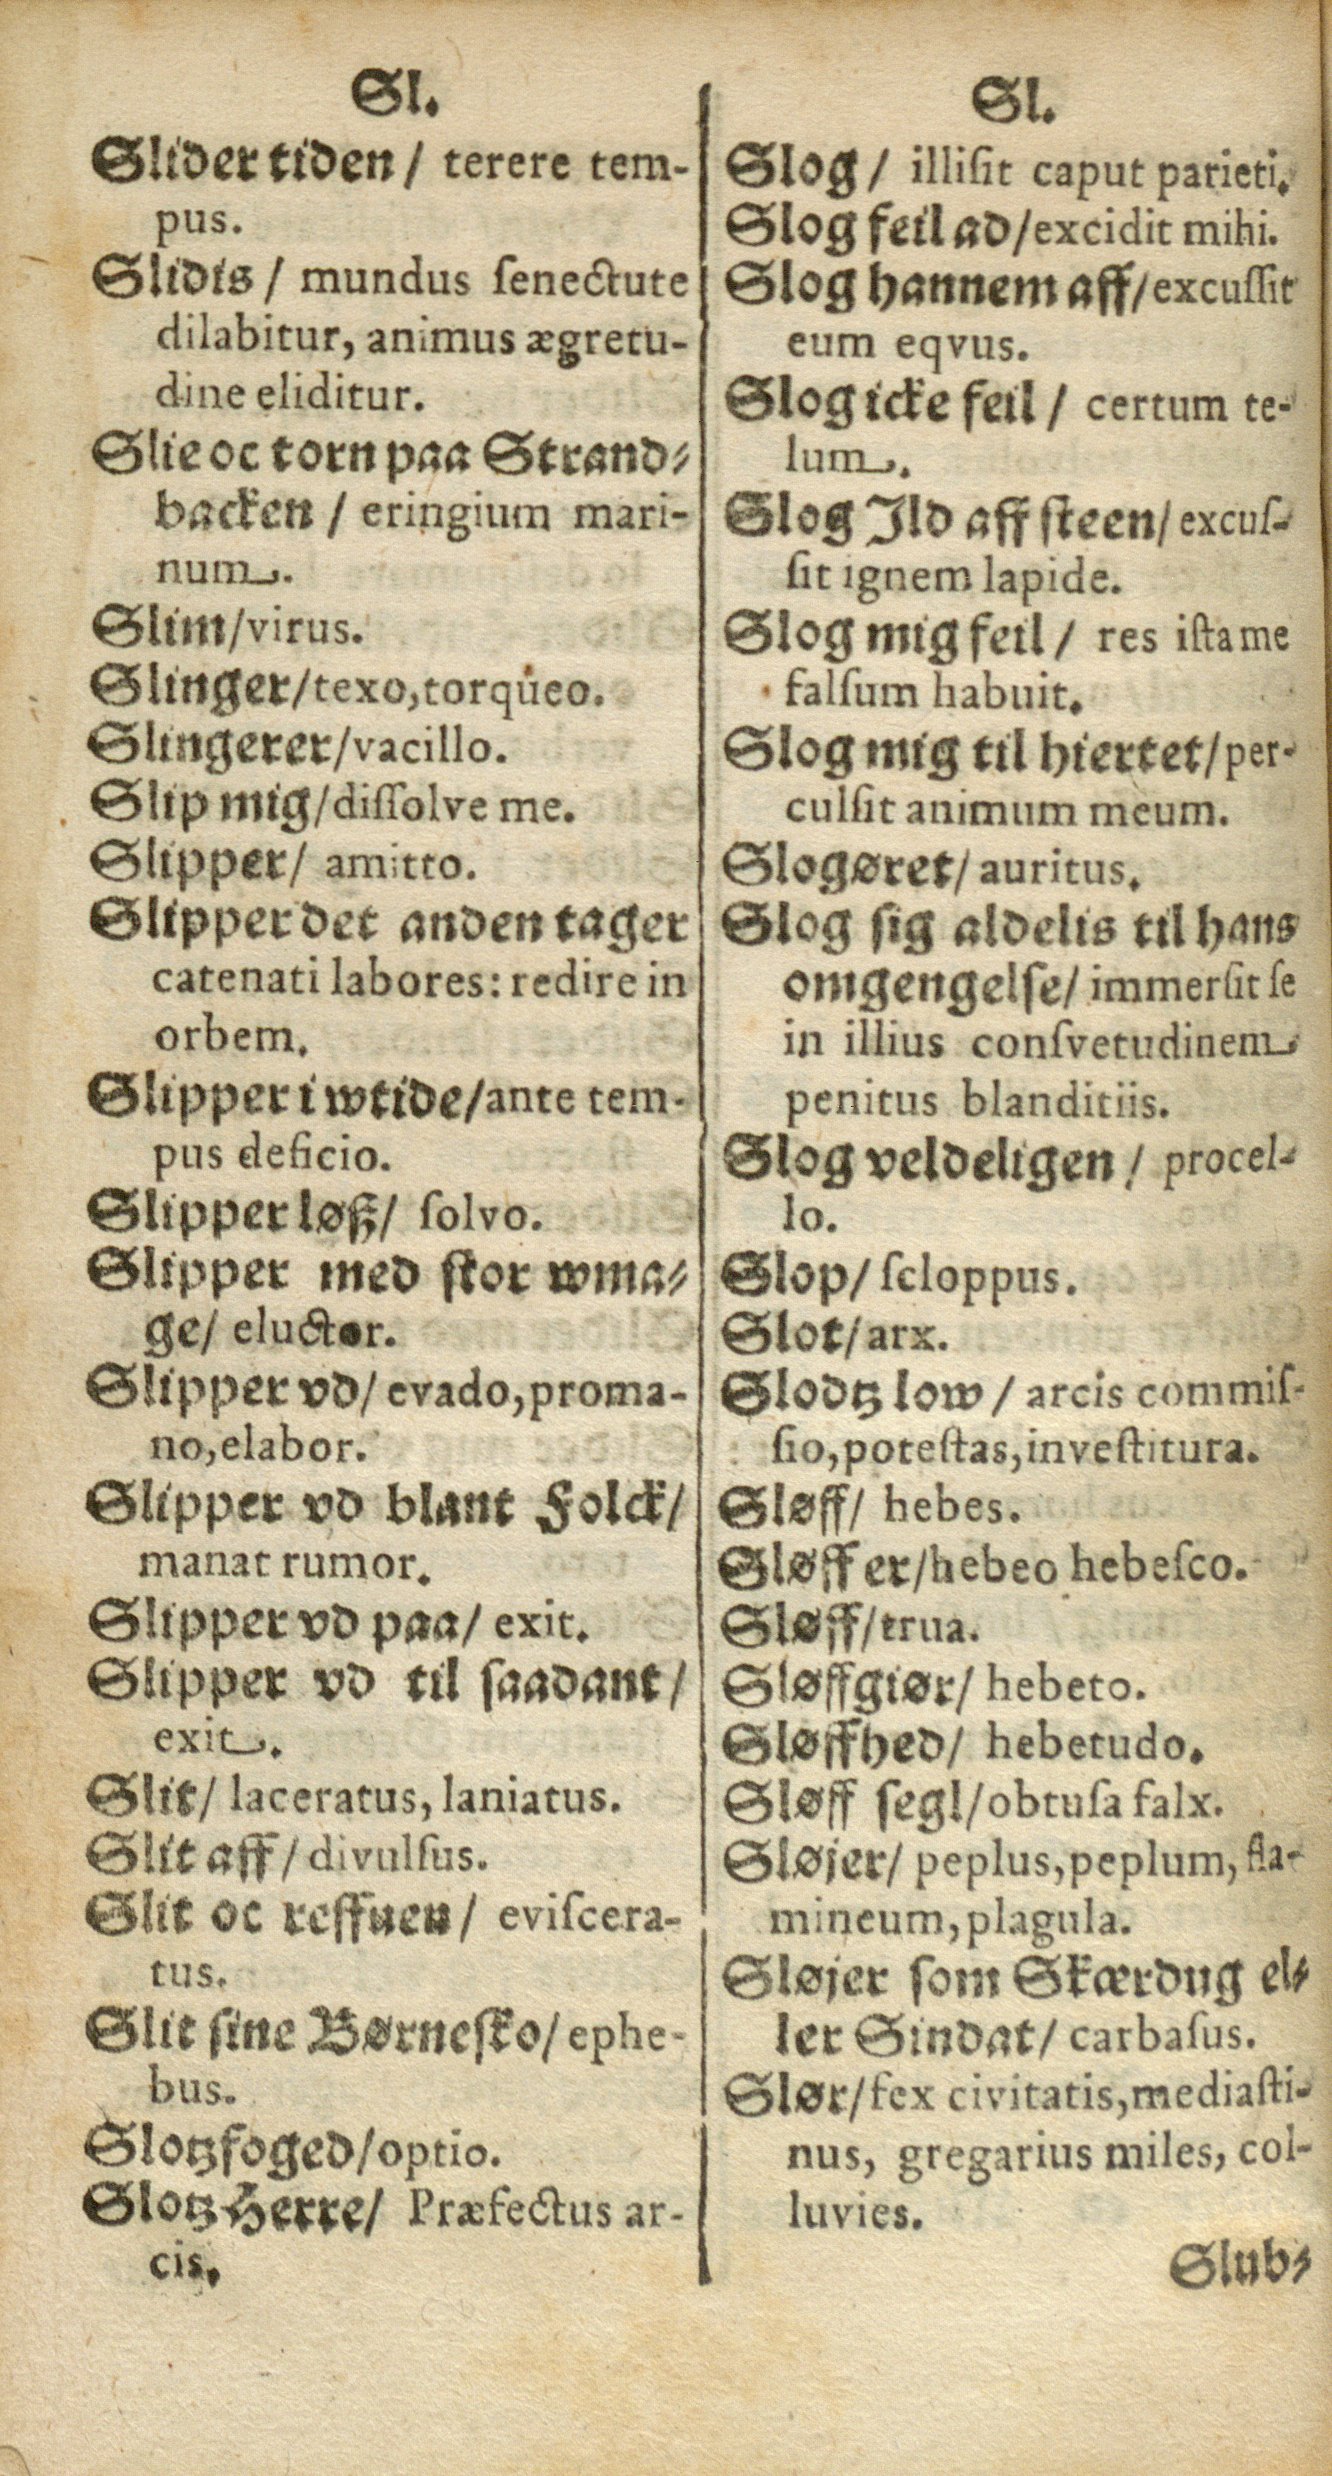 Sl.
Slider tiden / terere tem-
pus.
Slidis / mundus ſenectute
dilabitur, animus ægretu-
dine eliditur.
Slie oc torn paa Strand-
backen / eringium mari-
num.
Slim/virus.
Slinger/texo,torqueo.
Slingerer/vacillo.
Slip mig/diſſolve me.
Slipper/ amitto.
Slipper det anden tager
catenati labores: redire in
orbem.
Slipper i wtide/ante tem-
pus deficio.
Slipper løß/ ſolvo.
Slipper med ſtor wma-
ge/ eluctor.
Slipper vd/ evado,proma-
no,elabor.
Slipper vd blant Folck/
manat rumor.
Slipper vd paa/ exit.
Slipper vd til ſaadant/
exit.
Slit/ laceratus, laniatus.
Slit aff/ divulſus.
Slit oc reffuen/ eviſcera-
tus.
Slit ſine Børneſko/ ephe-
bus.
Slotzfoged/optio.
Slotz-Herre/ Præfectus ar-
cis.
Sl.
Slog/ illiſit caput parieti.
Slog feil ad/excidit mihi.
Slog hannem aff/excuſſit
eum eqvus.
Slog icke feil/ certum te-
lum.
Slog Ild aff ſteen/ excuſ-
ſit ignem lapide.
Slog mig feil/ res iſta me
falſum habuit.
Slog mig til hiertet/per-
culſit animum meum.
Slogøret/ auritus.
Slog ſig aldelis til hans
omgengelſe/ immerſit ſe
in illius conſvetudinem
penitus blanditiis.
Slog veldeligen / procel-
lo.
Slop/ ſcloppus.
Slot/ arx.
Slodtz low / arcis commiſ-
ſio,poteſtas,inveſtitura.
Sløff/ hebes.
Sløff er/hebeo hebeſco.
Sløff/trua.
Sløffgiør/ hebeto.
Sløffhed/ hebetudo.
Sløff ſegl/obtuſa falx.
Sløjer/ peplus,peplum, fla-
mineum,plagula.
Sløjer ſom Skærdug el-
ler Sindat/ carbaſus.
Slør/fex civitatis,mediaſti-
nus, gregarius miles, col-
luvies.
Slub-